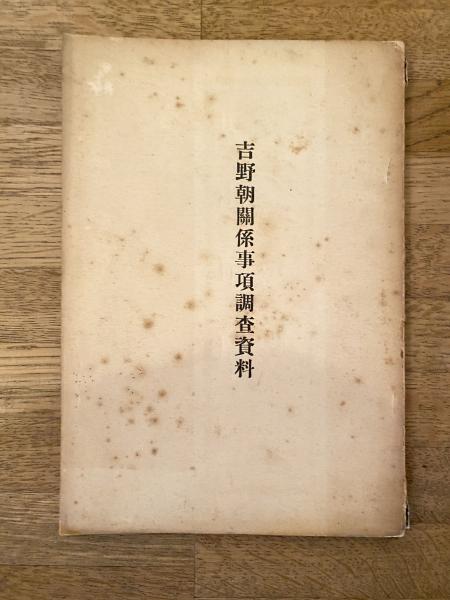 吉野朝關係事項調査資料